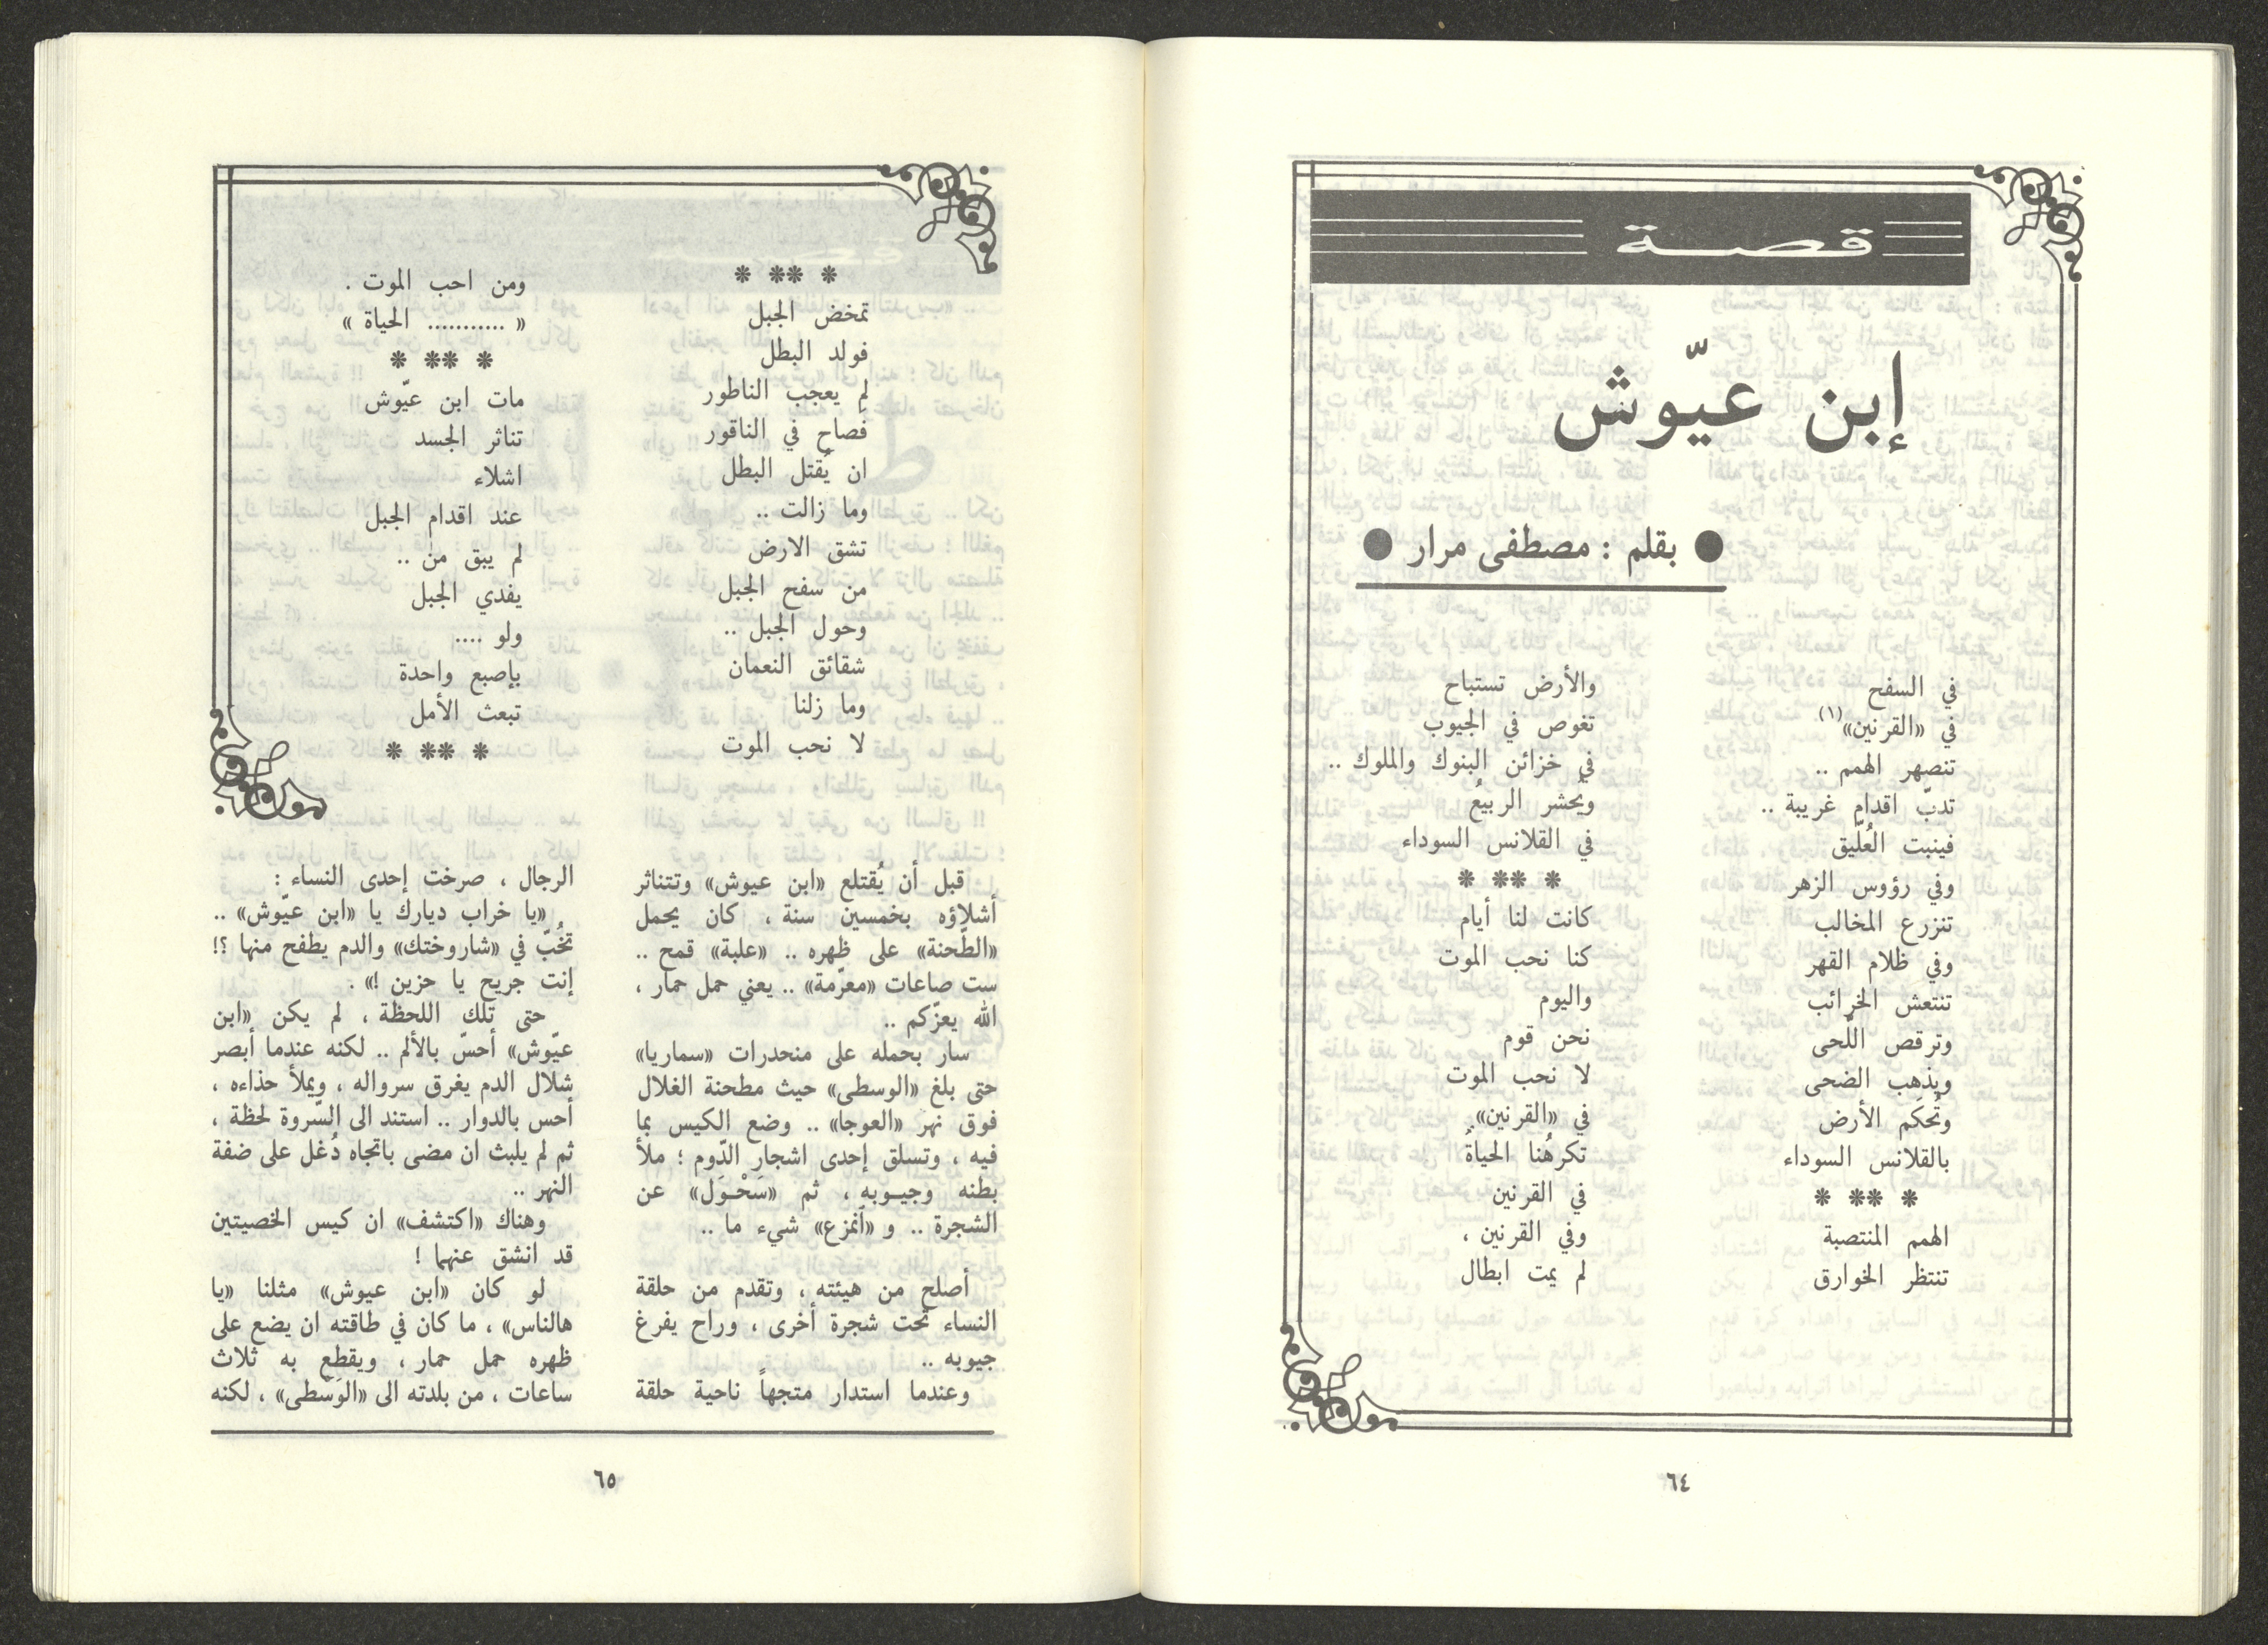 قصة
إبن عيّوش
● بقلم : مصطفى مرار ●
في السفح
في «القرنين»(١)
تنصهر الهمم ..
تدبّ اقدام غريبة ..
فينبت العُلّيق
وفي رؤوس الزهر
تنزرع المخالب
وفي ظلام القهر
تنتعش الخرائب
وترقص اللّحى
ويذهب الضحى
وتُحكَم الأرض
بالقلانس السوداء
* ** *
الهمم المنتصبة
تنتظر الخوارق
والأرض تستباح
تغوص في الجيوب
في خزائن البنوك والملوك ..
ويُحشر الربيعُ
في القلانس السوداء
* ** *
كانت لنا أيام
كنا نحب الموت
واليوم
نحن قوم
لا نحب الموت
في «القرنين»
تكرهُنا الحياةُ
في القرنين
وفي القرنين ،
لم يمت ابطال
٦٤
* ** *
تمخض الجبل
فولد البطل
لم يعجب الناطور
فصاح في الناقور
ان يُقتل البطل
وما زالت ..
تشق الارض
من سفح الجبل
وحول الجبل ..
شقائق النعمان
وما زلنا
لا نحب الموت
ومن احب الموت .
« ........... الحياة »
* ** *
مات ابن عيّوش
تناثر الجسد
اشلاء
عند اقدام الجبل
لم يبق من ..
يفدي الجبل
ولو ....
بإصبع واحدة
تبعث الأمل
* ** *
قبل أن يُقتلع «ابن عيوش» وتتناثر
أشلاؤه بخمسين سنة ، كان يحمل
«الطّحنة» على ظهره .. «علبة» قمح ..
ست صاعات «معرّمة» .. يعني حمل حمار ،
الله يعزّكم ..
سار بحمله على منحدرات «سماريا»
حتى بلغ «الوسطى» حيث مطحنة الغلال
فوق نهر «العوجا» .. وضع الكيس بما
فيه ، وتسلق إحدى اشجار الدّوم ؛ ملأ
بطنه وجيـوبه ، ثم «سَحْـوَل» عن
الشجرة .. و «آنمزع» شيء ما ..
أصلح من هيئته ، وتقدم من حلقة
النساء تحت شجرة أخرى ، وراح يفرغ
جيوبه ..
وعندما استدار متجهاً ناحية حلقة
الرجال ، صرخت إحدى النساء :
«يا خراب ديارك يا «ابن عيّوش» ..
تخُبّ في «شاروختك» والدم يطفح منها ؟!
إنت جريح يا حزين !» .
حتى تلك اللحظة ، لم يكن «ابن
عيّوش» أحسّ بالألم .. لكنه عندما أبصر
شلال الدم يغرق سرواله ، ويملأ حذاءه ،
أحس بالدوار .. استند الى السّروة لحظة ،
ثم لم يلبث ان مضى باتجاه دُغل على ضفة
النهر ..
وهناك «اكتشف» ان كيس الخصيتين
قد انشق عنهما !
لو كان «ابن عيوش» مثلنا «يا
هالناس» ، ما كان في طاقته ان يضع على
ظهره حمل حمار ، ويقطع به ثلاث
ساعات ، من بلدته الى «الوَسْطى» ، لكنه
٦٥